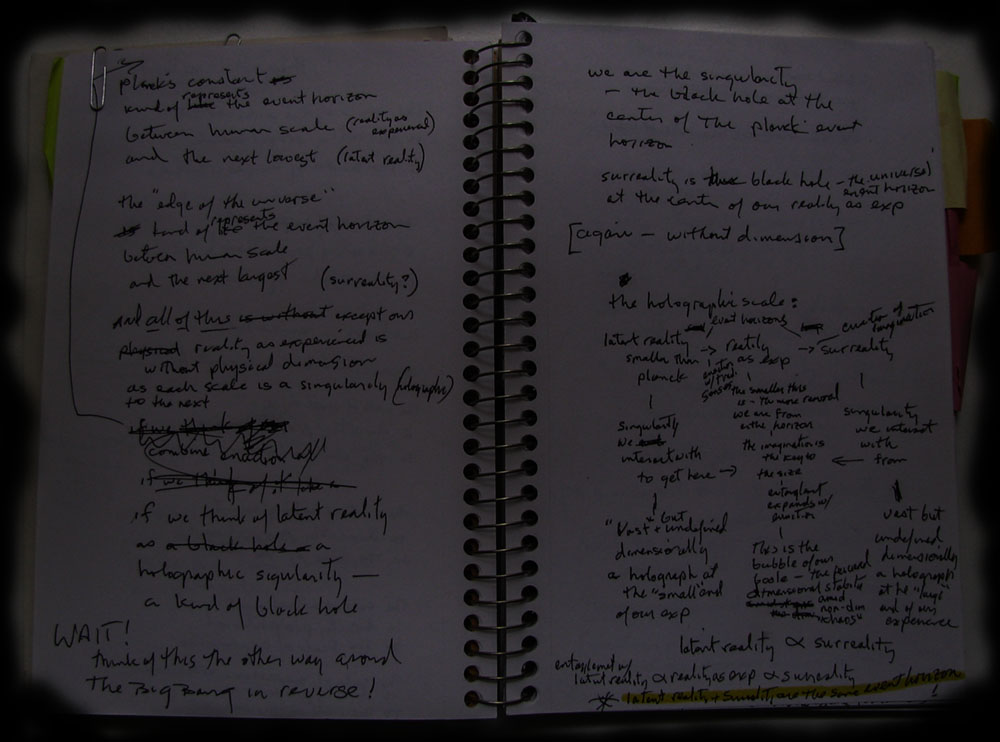 is
planck's constant
kind of represents the event horizon
between human scale (reality as experienced)
and the next lowest (latent reality)
the "edge of the universe"
kind of represents the event horizon
between human scale
and the next largest (surreality?)
and all of this is without except our
physical reality as experienced is
without physical dimension
as each scale is a singularity (holographic)
to the next
if we think
combine
if we think of it like a
if we think of latent reality
as a black hole a
holographic sigularity —
a kind of black hole
WAIT!
think of this the other way around
The Big Bang in reverse!
we are the singularity
– the black hole at the
center of the planck event
horizon
surreality is black hole – the universe)
event horizon
at the center of our reality as exp
[again – without dimension]
the holographic scale:
event horizons
latent reality → reality → surreality
smaller than as exp
planck
imagination
the smaller this
is – the more removed
we are from
horizon
the imagination is
the key to
the size
entanglement
expands w/
singularity
we
interact with
to get here →
singularity
we interact
with
← from
but
"Vast + undefined
dimensionally
a holograph at
the "small" end
of our exp
This is the
bubble of our
scale – the
dimensional stability
non-dim
vast but
undefined
dimensionally
a holograph
at the "large"
end of our
experience
latent reality ∝ surreality
entanglement w/
latent reality ∝ reality as exp ∝ surreality
* latent reality + surreality are the same event horizon!